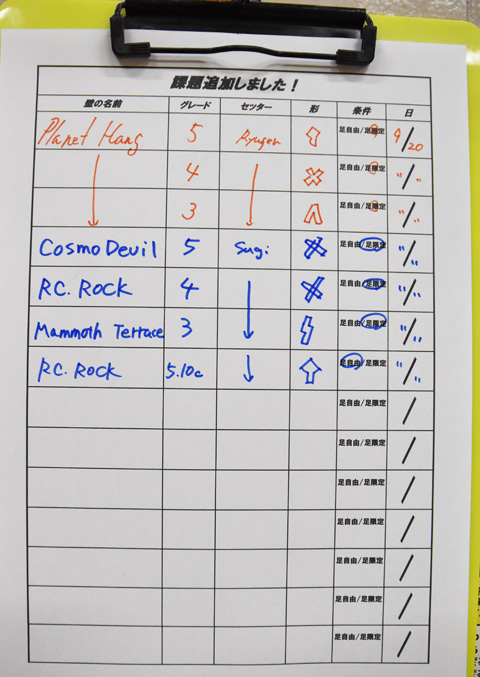 課題追加しました！
壁の名前 グレード セッター 形 条件 日
Planet Hang 5 Ryugen 足自由/足限定 9/20
4 足自由/足限定 〃/〃
3 足自由/足限定 〃/〃
Cosmo Devil 5 Sugi 足自由/足限定 〃/〃
R.C. ROCK 4 足自由/足限定 〃/〃
Mammoth Terrace 3 足自由/足限定 〃/〃
R.C. ROCK 5.10c 足自由/足限定 〃/〃
足自由/足限定 /
足自由/足限定 /
足自由/足限定 /
足自由/足限定 /
足自由/足限定 /
足自由/足限定 /
足自由/足限定 /